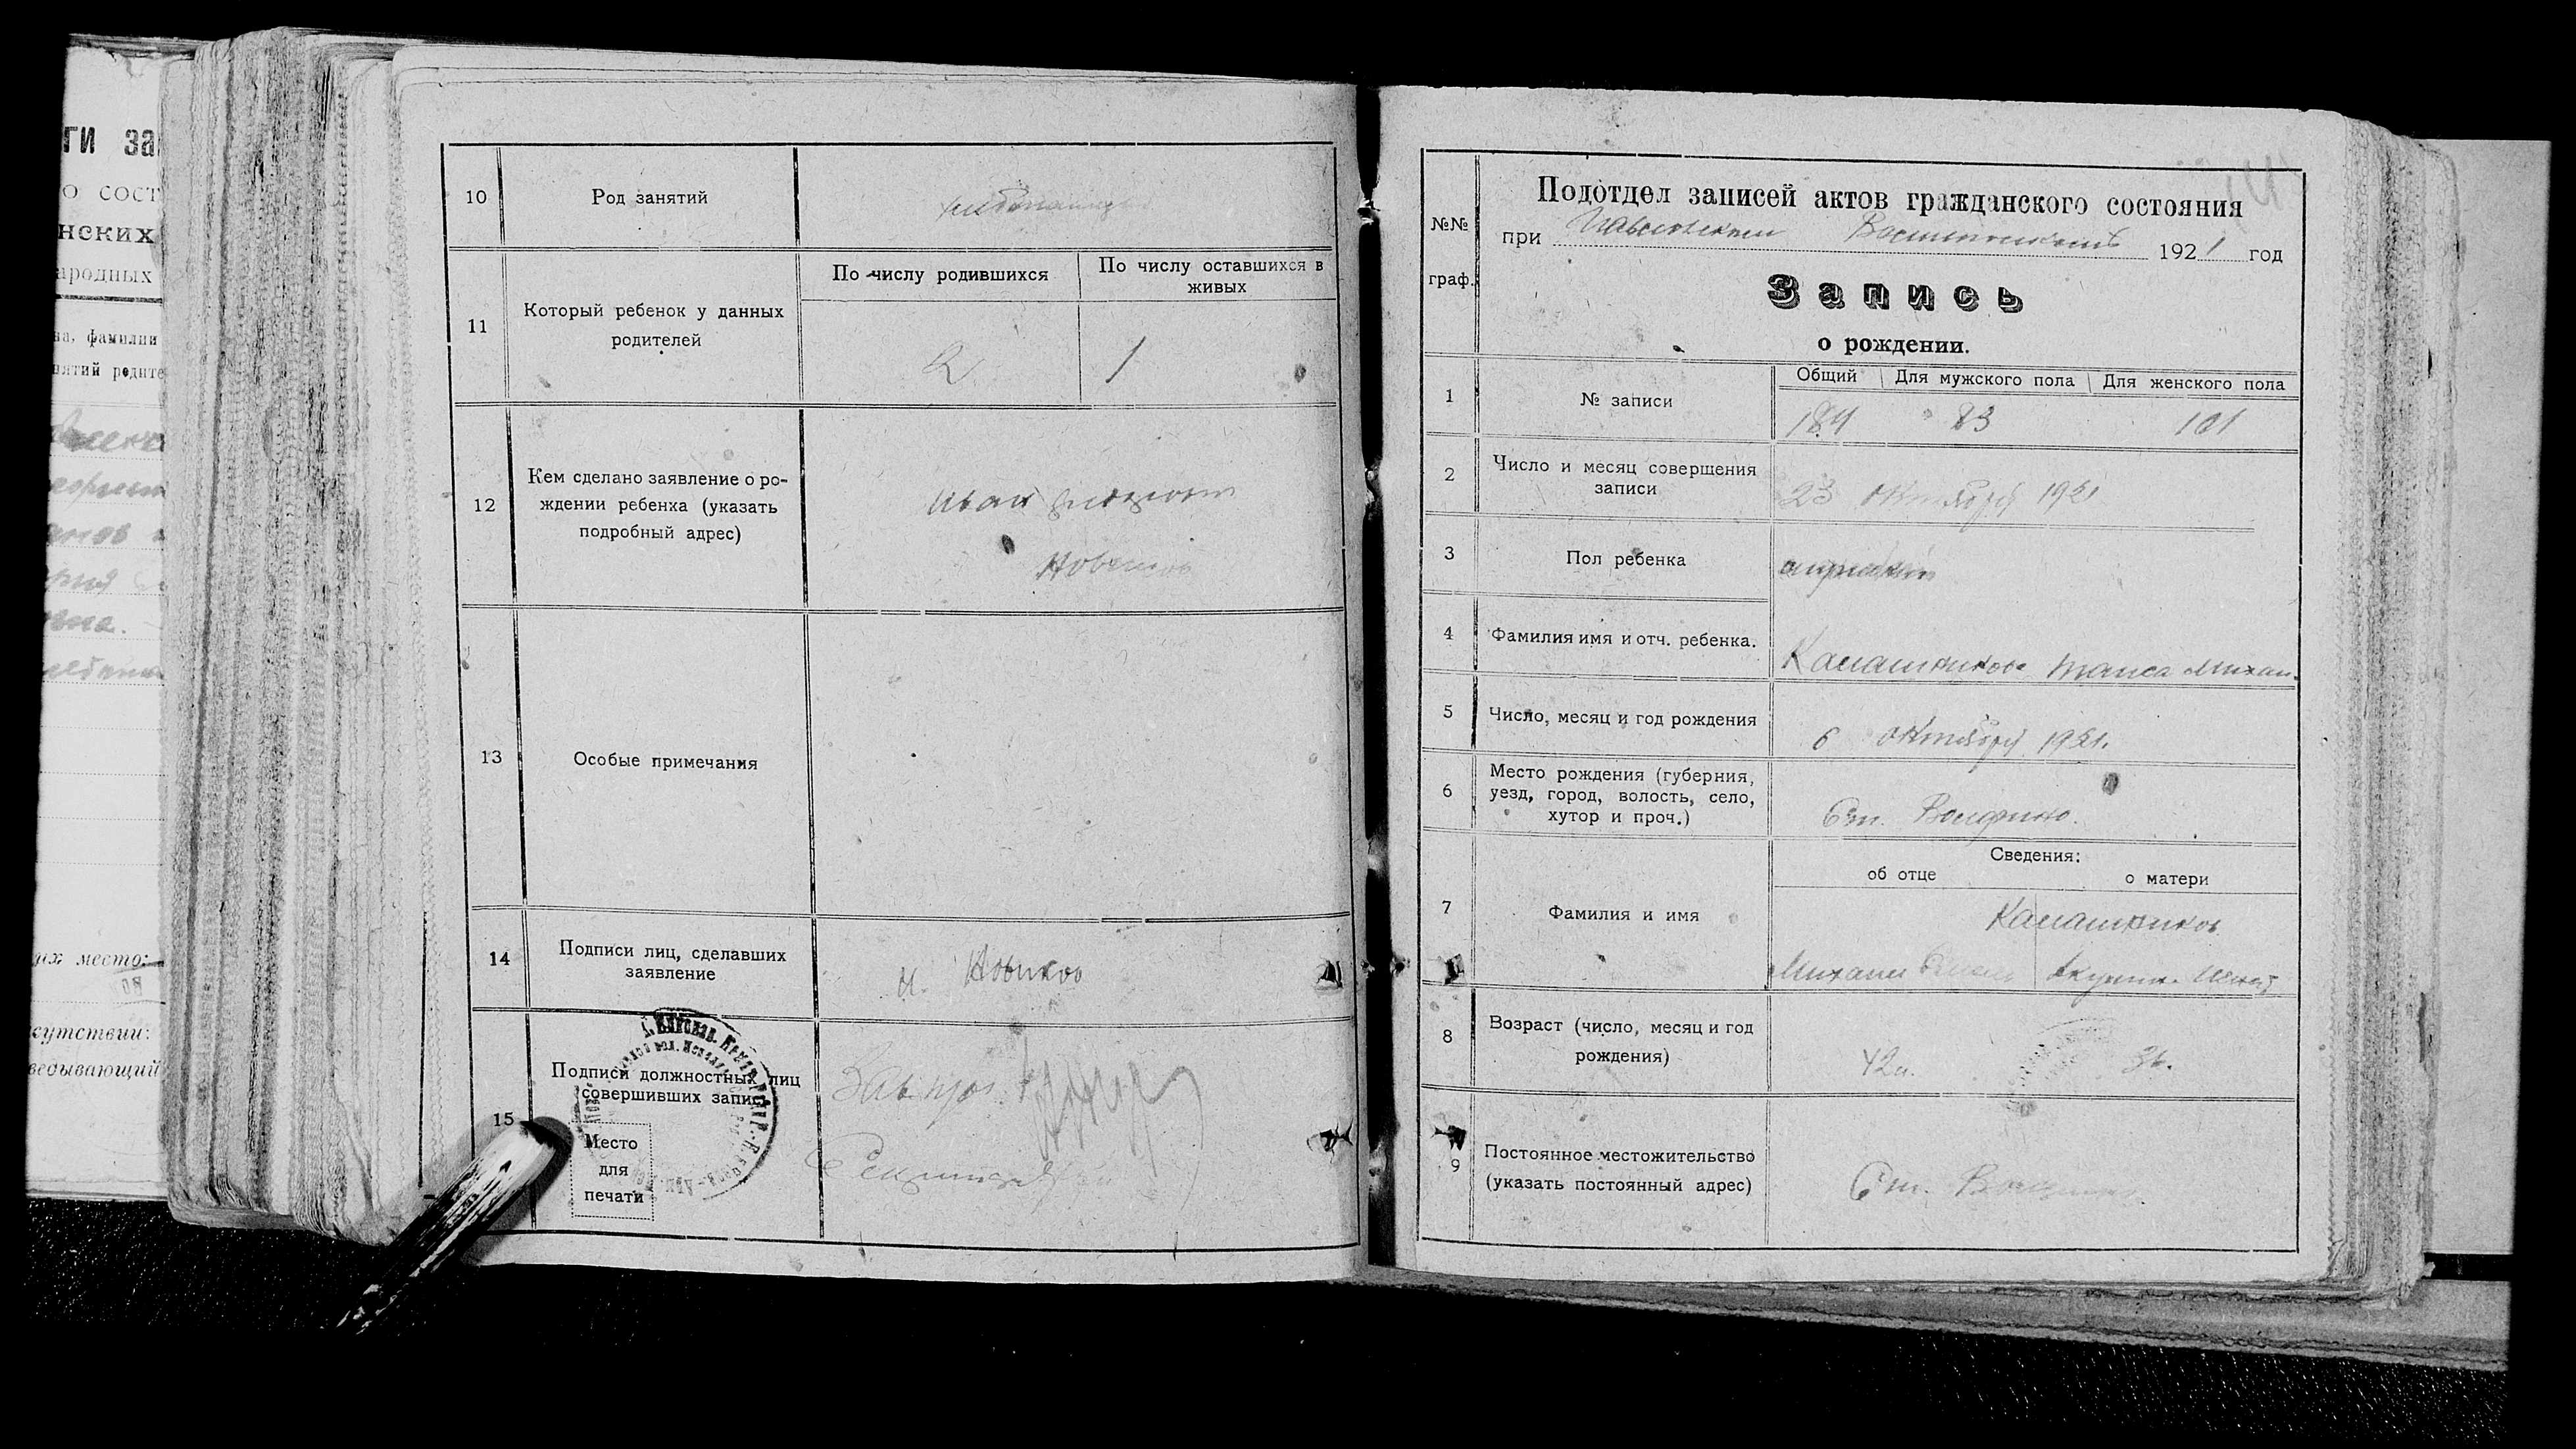 ГИ ЗА
О СОСТ
НСКИХ
АРОДНЫХ
на, фамилии
нятий родите
их место:
сутствии:
ведывающий
10
Род занятий
11
Который ребенок у данных
родителей
По числу родившихся
По числу оставшихся в
живых
2
1
12
Кем сделано заявление о ро-
ждении ребенка (указать
подробный адрес)
Иван
13
Особые примечания
14
Подписи лиц, сделавших
заявление
И. Новиков
15
Подписи должностных лиц
совершивших запись
Место
для
печати
№№
граф.
Подотдел записей актов гражданского состояния
при 1921 год
Запись
о рождении.
1
№ записи
Общий
Для мужского пола
Для женского пола
184
83
101
2
Число и месяц совершения
записи
23 октября 1921
3
Пол ребенка
4
Фамилия имя и отч. ребенка.
Калашникова Таиса Михаи.
5
Число, месяц и год рождения
6 октября 1921.
6
Место рождения (губерния,
уезд, город, волость, село,
хутор и проч.)
Ст. Волфино.
7
Фамилия и имя
Сведения:
об отце
о матери
Калашников
Михаил
8
Возраст (число, месяц и год
рождения)
42
36.
9
Постоянное местожительство
(указать постоянный адрес)
Ст. Волфино.